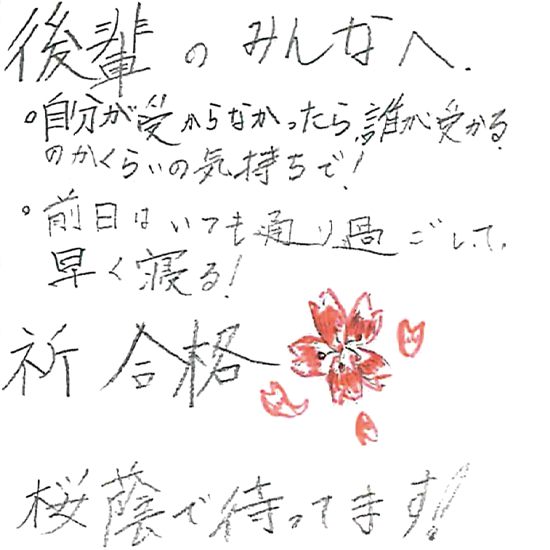 後輩のみんなへ.
○自分が受からなかったら,誰が受かる
のかくらいの気持ちで!
○前日はいつも通り過ごして,
早く寝る!
祈合格
桜蔭で待ってます!!